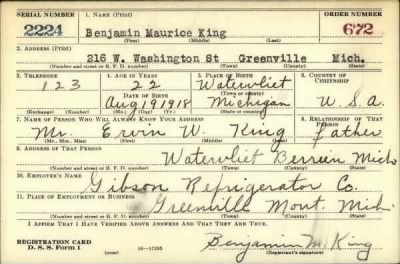 SERIAL NUMBER 1. NAME (Print) ORDER NUMBER
2224 Benjamin Maurice King 672
(First) (Middle) (Last)
2. ADDRESS (Print)
216 W. Washington St Greenville Mich.
(Number and street or R. F. D. number) (Town) (County) (State)
3. TELEPHONE 4. AGE IN YEARS 5. PLACE OF BIRTH 6. COUNTRY OF CITIZENSHIP
123 22 Watervliet
DATE OF BIRTH (Town or county)
Aug 19 1918 Michigan U.S.A.
(Exchange) (Number) (Mo.) (Day) (Yr.) (State or country)
7. NAME OF PERSON WHO WILL ALWAYS KNOW YOUR ADDRESS 8. RELATIONSHIP OF THAT PERSON
Mr. Ervin W. King father
(Mr., Mrs., Miss) (First) (Middle) (Last)
9. ADDRESS OF THAT PERSON
Watervliet Berrien Mich
(Number and street or R. F. D. number) (Town) (County) (State)
10. EMPLOYER'S NAME
Gibson Refrigerator Co.
11. PLACE OF EMPLOYMENT OR BUSINESS
Greenville Mont. Mich.
(Number and street or R. F. D. number) (Town) (County) (State)
I AFFIRM THAT I HAVE VERIFIED ABOVE ANSWERS AND THAT THEY ARE TRUE.
REGISTRATION CARD
D. S. S. Form 1 16-17105 Benjamin M. King
(Registrant's signature)